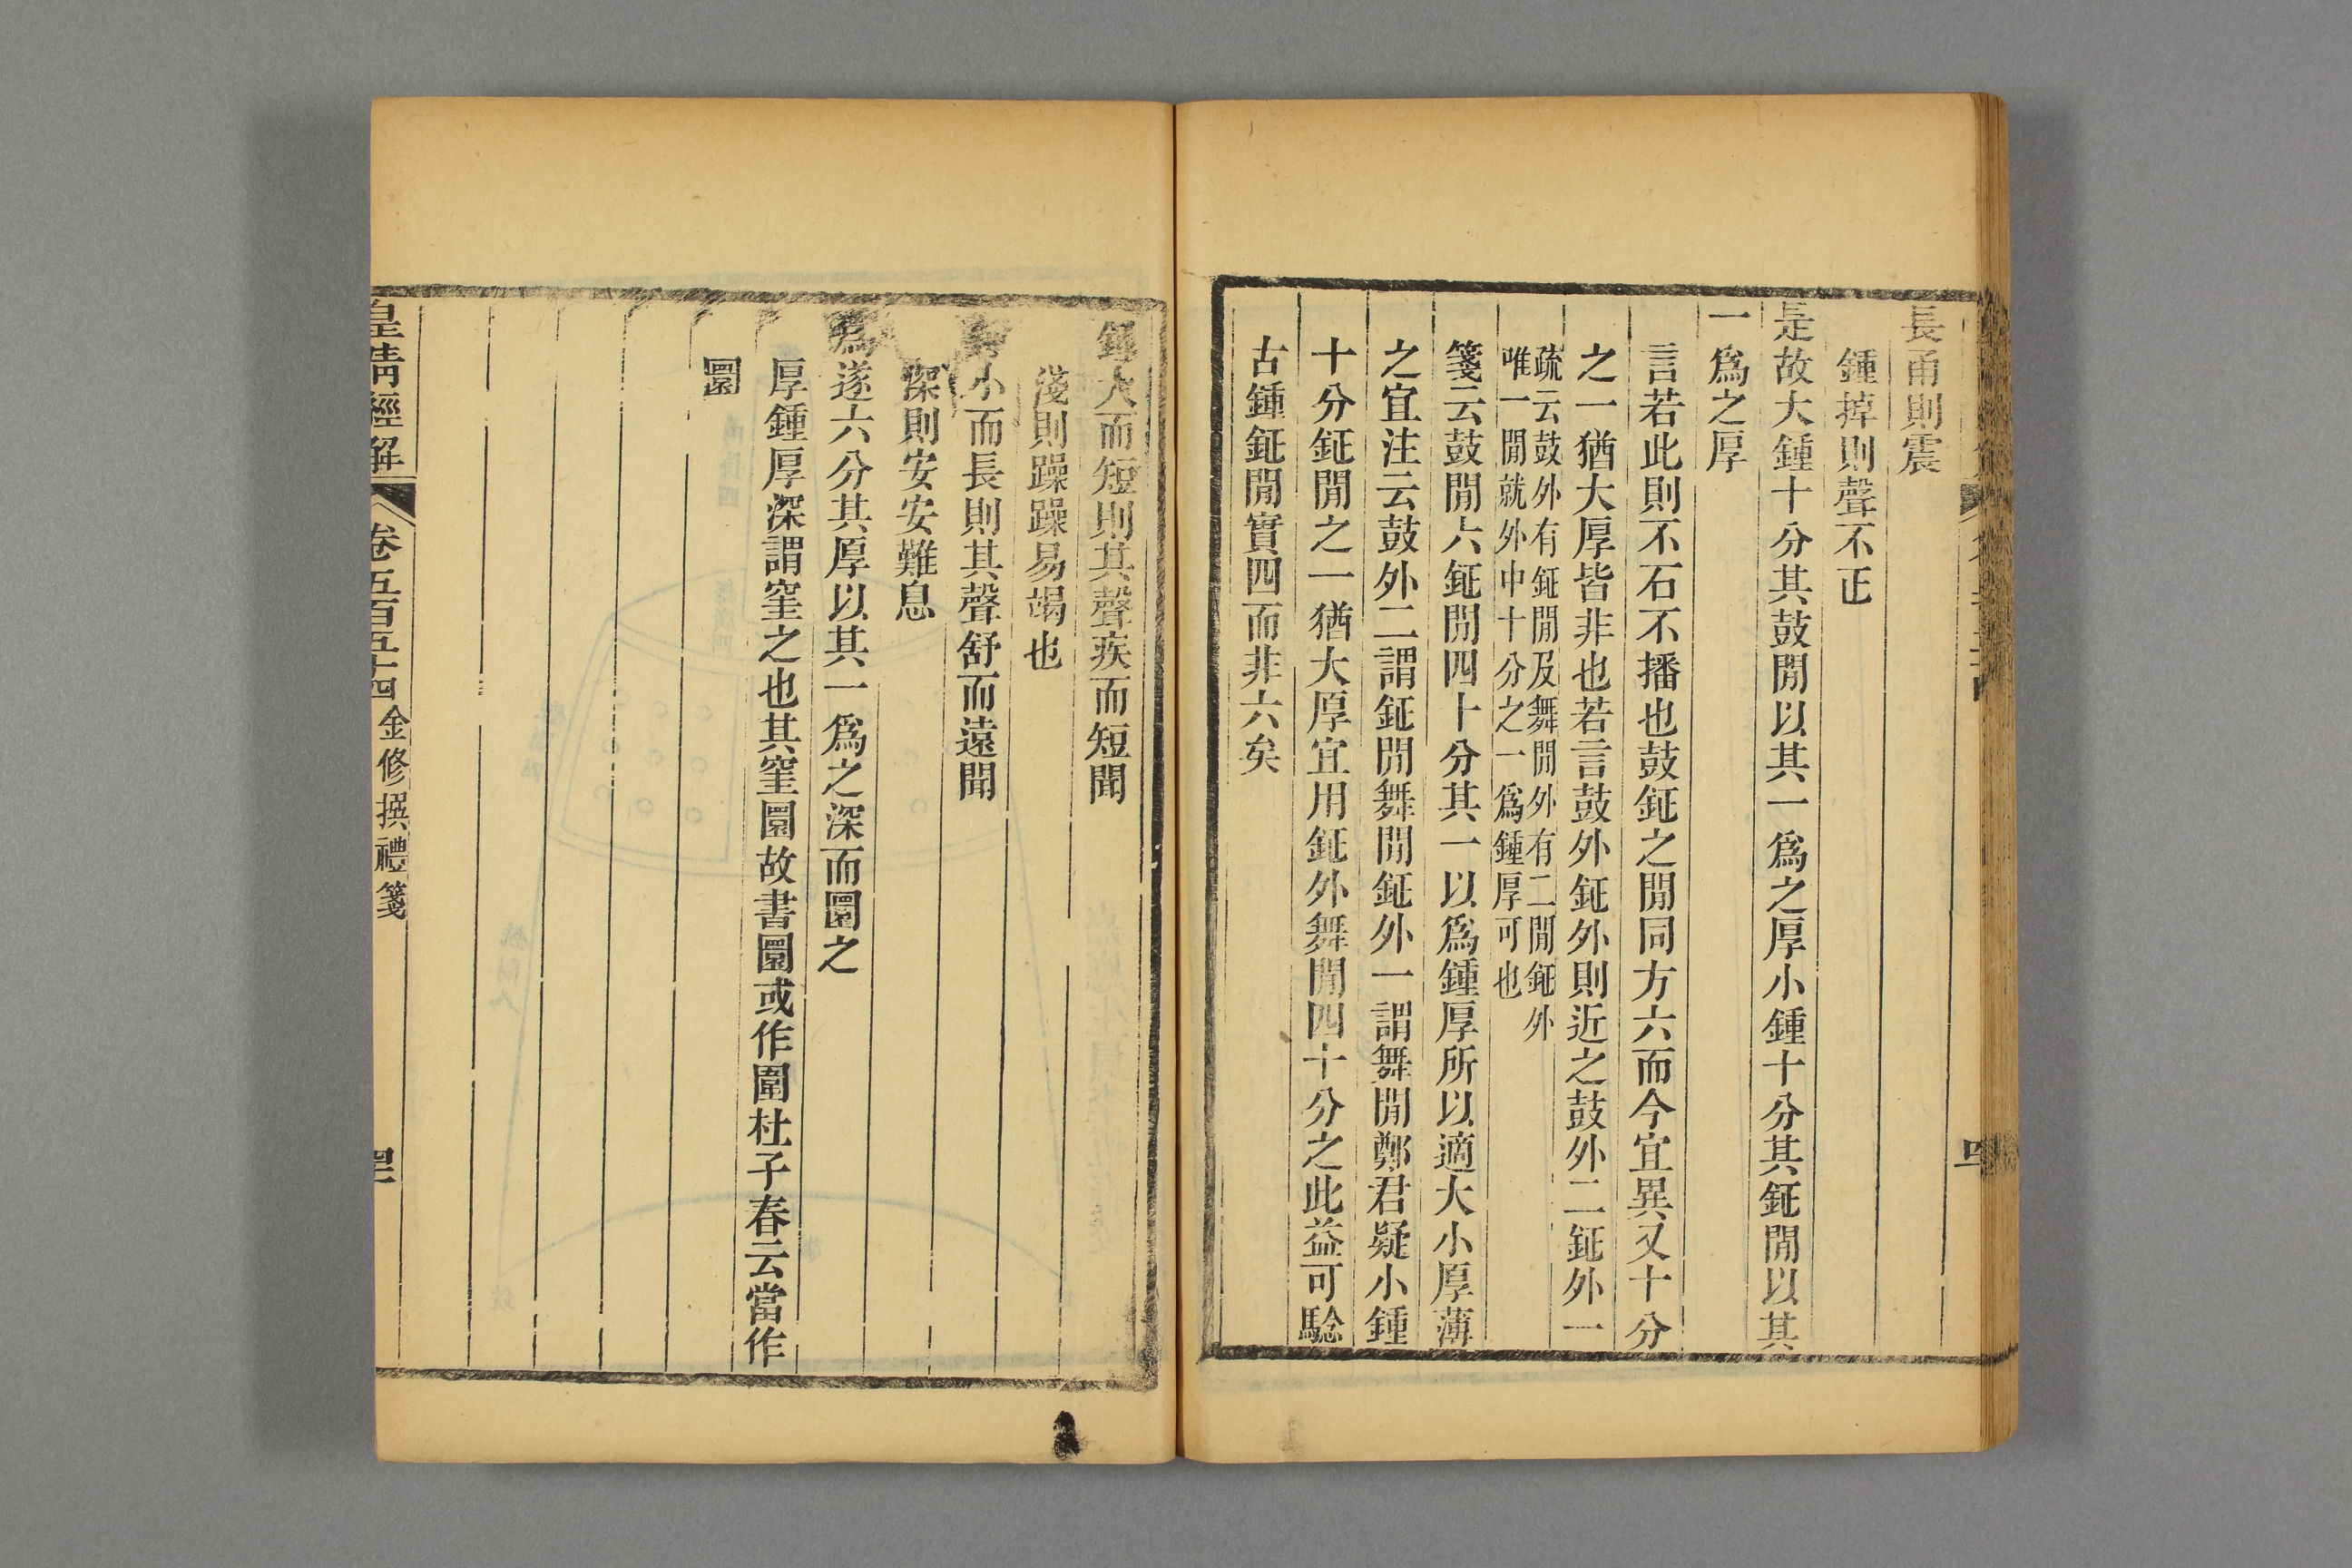 長甬則震
鍾掉則聲不正
是故大鍾十分其鼓閒以其一爲之厚小鍾十分其鉦閒以其
一爲之厚
言若此則不石不播也鼓鉦之閒同方六而今宜異又十分
之一猶大厚皆非也若言鼓外鉦外則近之鼓外二鉦外一
疏云鼓外有鉦閒及舞閒外有二閒鉦外
唯一閒就外中十分之一爲鍾厚可也
箋云鼓閒六鉦閒四十分其一以爲鍾厚所以適大小厚薄
之宜注云鼓外二謂鉦閒舞閒鉦外一謂舞閒鄭君疑小鍾
十分鉦閒之一猶大厚宜用鉦外舞閒四十分之此益可騐
古鍾鉦閒實四而非六矣
鍾大而短則其聲疾而短聞
淺則躁躁易竭也
小而長則其聲舒而遠聞
深則安安難息
爲遂六分其厚以其一爲之深而圜之
厚鍾厚深謂窐之也其窐圜故書圜或作圍杜子春云當作
圜
皇淸經解 卷五百五十四 金修撰禮箋